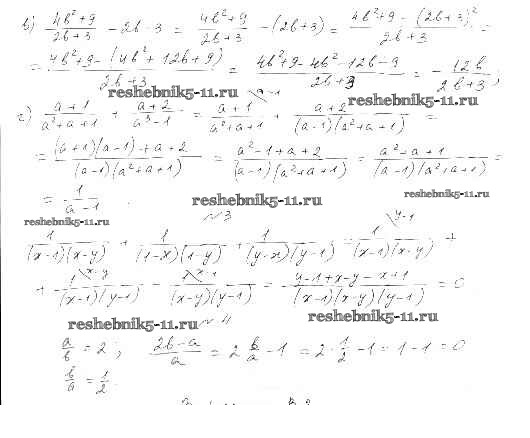 в) (4b²+9)/(2b+3) - 2b-3 = (4b²+9)/(2b+3) - (2b+3) = (4b²+9-(2b+3)²)/(2b+3) =
= (4b²+9-(4b²+12b+9))/(2b+3) = (4b²+9-4b²-12b-9)/(2b+3) = -12b/(2b+3);
reshebnik5-11.ru
г) (a+1)/(a²+a+1) + (a+2)/(a³-1) = (a+1)\a-1/(a²+a+1) + (a+2)/((a-1)(a²+a+1)) =
reshebnik5-11.ru
= ((a+1)(a-1)+a+2)/((a-1)(a²+a+1)) = (a²-1+a+2)/((a-1)(a²+a+1)) = (a²+a+1)/((a-1)(a²+a+1)) =
= 1/(a-1).
reshebnik5-11.ru
reshebnik5-11.ru
reshebnik5-11.ru
№3
1/((x-1)(x-y)) + 1/((1-x)(1-y)) + 1/((y-x)(y-1)) = 1\y-1/((x-1)(x-y)) +
+ 1\x-y/((x-1)(y-1)) - 1\x-1/((x-y)(y-1)) = (y-1+x-y-x+1)/((x-1)(x-y)(y-1)) = 0
reshebnik5-11.ru
reshebnik5-11.ru
№4
a/b = 2; (2b-a)/a = 2 b/a - 1 = 2·1/2 - 1 = 1-1 = 0
b/a = 1/2.